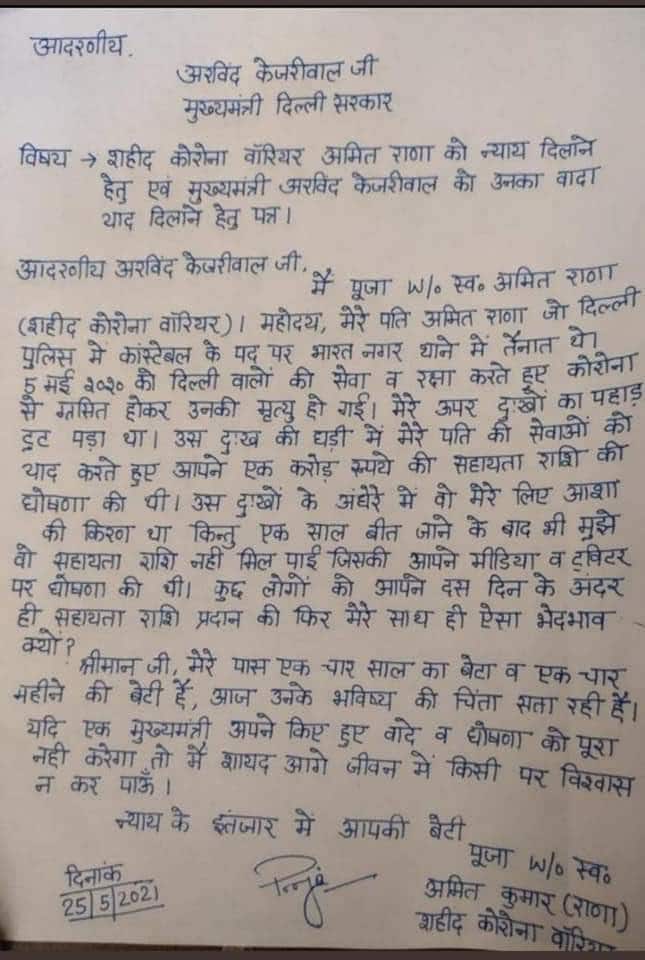 आदरणीय.
अरविंद केजरीवाल जी
मुख्यमंत्री दिल्ली सरकार
विषय → शहीद कोरोना वॉरियर अमित राणा को न्याय दिलाने
हेतु एवं मुख्यमंत्री अरविंद केजरीवाल को उनका वादा
याद दिलाने हेतु पत्र।
आदरणीय अरविंद केजरीवाल जी,
मै पूजा w/o स्व० अमित राणा
(शहीद कोरोना वॉरियर)। महोदय, मेरे पति अमित राणा जो दिल्ली
पुलिस में कांस्टेबल के पद पर भारत नगर थाने में तैनात थे।
5 मई २०२० को दिल्ली वालों की सेवा व रक्षा करते हुए कोरोना
से ग्रसित होकर उनकी मृत्यु हो गई। मेरे ऊपर दुःखों का पहाड़
टूट पड़ा था। उस दुःख की घड़ी में मेरे पति की सेवाओं को
याद करते हुए आपने एक करोड़ रूपये की सहायता राशि की
घोषणा की थी। उस दुःखों के अंधेरे में वो मेरे लिए आशा
की किरण था किन्तु एक साल बीत जाने के बाद भी मुझे
वो सहायता राशि नहीं मिल पाई जिसकी आपने मीडिया व ट्विटर
पर घोषणा की थी। कुछ लोगों को आपने दस दिन के अंदर
ही सहायता राशि प्रदान की फिर मेरे साथ ही ऐसा भेदभाव
क्यों?
श्रीमान जी, मेरे पास एक चार साल का बेटा व एक चार
महीने की बेटी है, आज उनके भविष्य की चिंता सता रही है।
यदि एक मुख्यमंत्री अपने किए हुए वादे व घोषणा को पूरा
नही करेगा तो मै शायद आगे जीवन में किसी पर विश्वास
न कर पाऊँ।
न्याय के इंतजार में आपकी बेटी
पूजा w/o स्व०
अमित कुमार (राणा)
शहीद कोरोना वॉरियर
दिनांक
25/5/2021
Pooja